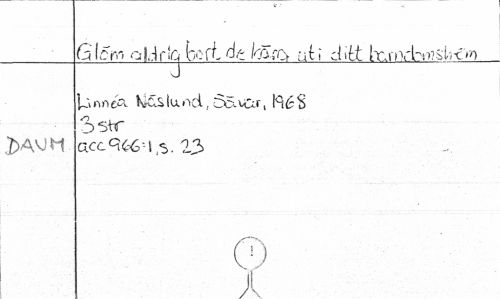 Glöm aldrig bort de kära uti ditt barndomshem
Linnéa Näslund, Sävar, 1968
3 str
DAUM acc 966:1, s. 23